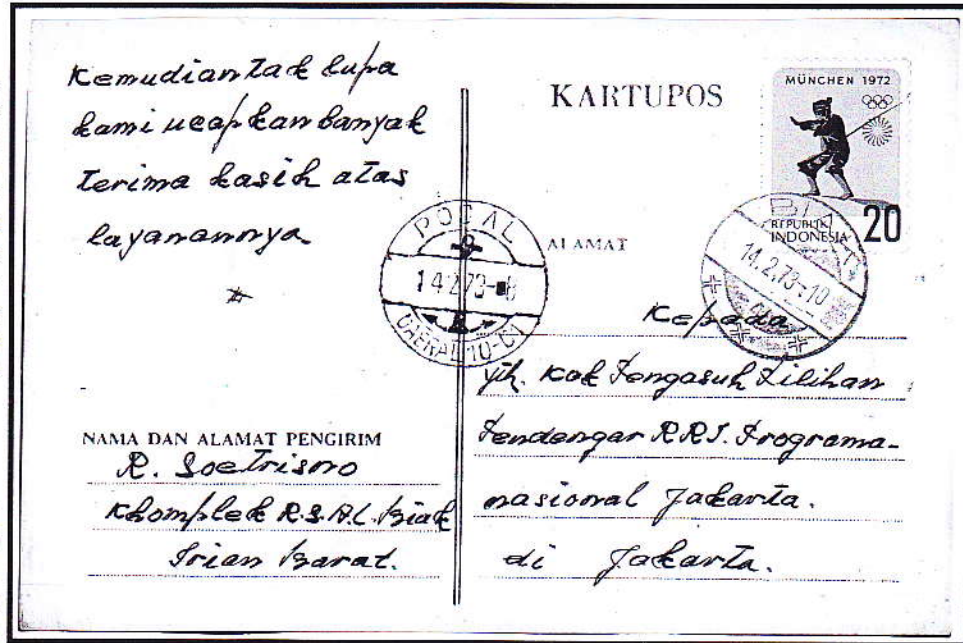 Kemudian tak lupa
kami ucapkan banyak
terima kasih atas
layanannya.
NAMA DAN ALAMAT PENGIRIM
R. Soetrisno
Khomplek R.S.A.L. Biak
Irian Barat.
KARTUPOS
MÜNCHEN 1972
REPUBLIK
INDONESIA
20
BIAK
14.2.73-10
POCAL
14.2.73-8
DAERAL 10-01
ALAMAT
Kepada
yth. Kak Pengasuh Pilihan
Pendengar R.R.I. Programa-
nasional Jakarta.
di Jakarta.